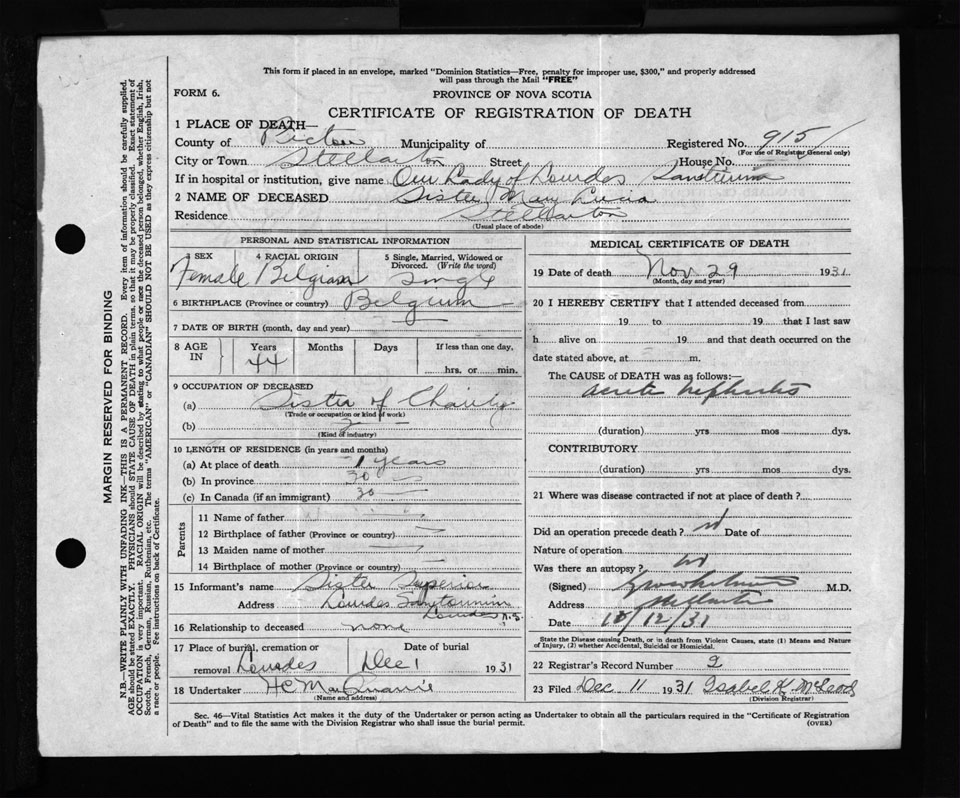 This form if placed in an envelope, marked "Dominion Statistics—Free, penalty for improper use, $300," and properly addressed
will pass through the Mail "FREE"
FORM 6.
PROVINCE OF NOVA SCOTIA
CERTIFICATE OF REGISTRATION OF DEATH
1 PLACE OF DEATH—
County of Pictou Municipality of Registered No. 915
(For use of Registrar General only)
City or Town Stellarton Street House No.
If in hospital or institution, give name Our Lady of Lourdes
2 NAME OF DECEASED Sister Mary
Residence Stellarton
(Usual place of abode)
PERSONAL AND STATISTICAL INFORMATION
3 SEX 4 RACIAL ORIGIN 5 Single, Married, Widowed or
Divorced. (Write the word)
Female Belgian Single
6 BIRTHPLACE (Province or country) Belgium
7 DATE OF BIRTH (month, day and year)
8 AGE IN Years Months Days If less than one day,
44
hrs. or min.
9 OCCUPATION OF DECEASED
(a) Sister of Charity
(Trade or occupation or kind of work)
(b)
(Kind of industry)
10 LENGTH OF RESIDENCE (in years and months)
(a) At place of death 1 years
(b) In province 30
(c) In Canada (if an immigrant) 30
Parents
11 Name of father
12 Birthplace of father (Province or country)
13 Maiden name of mother
14 Birthplace of mother (Province or country)
15 Informant's name Sister Superior
Address Lourdes
Lourdes N.S.
16 Relationship to deceased none
17 Place of burial, cremation or Date of burial
removal Lourdes Dec 1 1931
18 Undertaker H C MacQuarrie
(Name and address)
MEDICAL CERTIFICATE OF DEATH
19 Date of death Nov 29 1931
(Month, day and year)
20 I HEREBY CERTIFY that I attended deceased from
19 to 19 that I last saw
h alive on 19 and that death occurred on the
date stated above, at m.
The CAUSE OF DEATH was as follows:—
acute nephritis
(duration) yrs mos dys.
CONTRIBUTORY
(duration) yrs mos dys.
21 Where was disease contracted if not at place of death?
Did an operation precede death? Date of
Nature of operation
Was there an autopsy?
(Signed) M.D.
Address
Date 10/12/31
State the Disease causing Death, or in death from Violent Causes, state (1) Means and Nature
of Injury, (2) whether Accidental, Suicidal or Homicidal.
22 Registrar's Record Number 2
23 Filed Dec 11 1931 Isabel K McLeod
(Division Registrar)
Sec. 46—Vital Statistics Act makes it the duty of the Undertaker or person acting as Undertaker to obtain all the particulars required in the "Certificate of Registration
of Death" and to file the same with the Division Registrar who shall issue the burial permit.
(OVER)
MARGIN RESERVED FOR BINDING
N.B.—WRITE PLAINLY WITH UNFADING INK—THIS IS A PERMANENT RECORD. Every item of information should be carefully supplied.
AGE should be stated EXACTLY. PHYSICIANS should STATE CAUSE OF DEATH in plain terms, so that it may be properly classified. Exact statement of
OCCUPATION is very important. RACIAL ORIGIN will be described by stating to what people or race the deceased person belonged, whether English, Irish,
Scotch, French, German, Russian, Ruthenian, etc. The terms "AMERICAN" or "CANADIAN" SHOULD NOT BE USED as they express citizenship but not
a race or people. Fee instructions on back of Certificate.